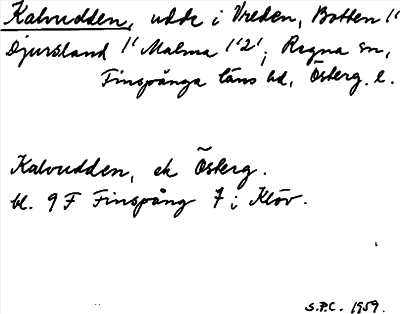 Kalvudden, udde i Vreden, Botten 1'
Djursland 1' Malma 1'2', Regna sn,
Finspånga läns hd, Österg. l.
Kalvudden, ek Österg.
bl. 9 F Finspång 7 i Klöv.
S.P.C. 1959.